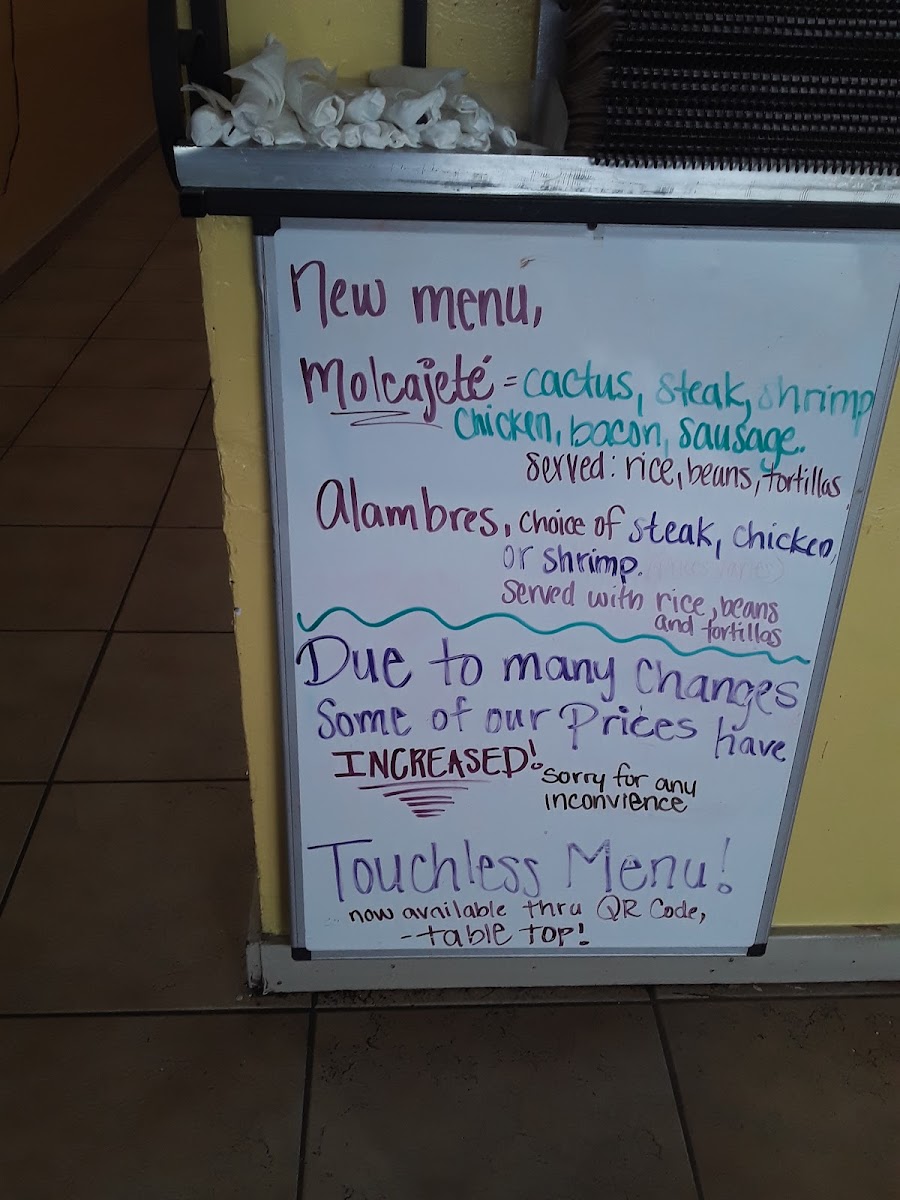 New menu,
Molcajeté = cactus, steak, shrimp
chicken, bacon, sausage.
served: rice, beans, tortillas
Alambres, choice of steak, chicken,
or shrimp.
served with rice, beans
and tortillas
Due to many changes
Some of our Prices have
INCREASED!
sorry for any
inconvience
Touchless Menu!
now available thru QR Code,
- table top!